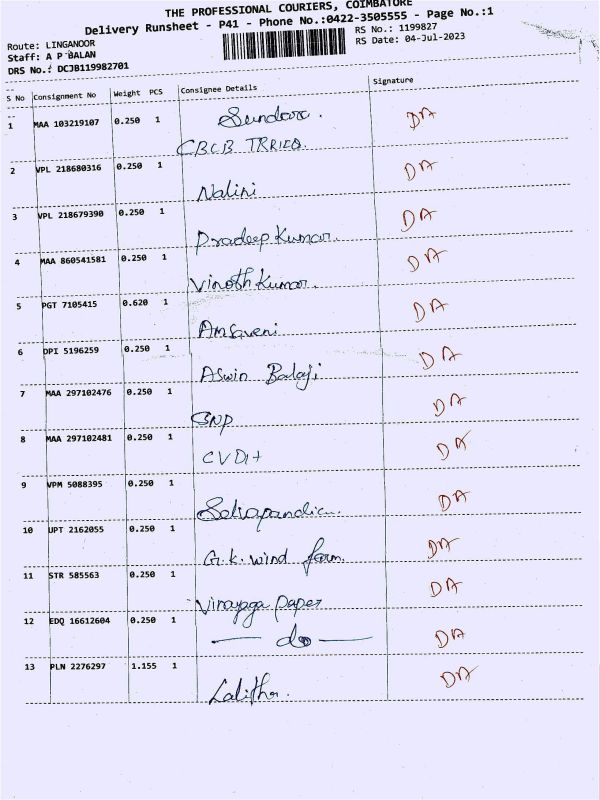 THE PROFESSIONAL COURIERS, COIMBATORE
Delivery Runsheet - P41 - Phone No.:0422-3505555 - Page No.:1
Route: LINGANOOR RS No.: 1199827
Staff: A P BALAN RS Date: 04-Jul-2023
DRS No.: DCJB119982701
S No Consignment No Weight PCS Consignee Details Signature
1 MAA 103219107 0.250 1 DA
CBCB
2 VPL 218680316 0.250 1 Nalini DA
3 VPL 218679390 0.250 1 Pradeep Kumar. DA
4 MAA 860541581 0.250 1 Vinoth Kumar. DA
5 PGT 7105415 0.620 1 Amsaveni DA
6 DPI 5196259 0.250 1 Aswin Balaji DA
7 MAA 297102476 0.250 1 SNP DA
8 MAA 297102481 0.250 1 DA
9 VPM 5088395 0.250 1 DA
10 UPT 2162055 0.250 1 G.K. wind farm. DA
11 STR 585563 0.250 1 Vinayaga paper DA
12 EDQ 16612604 0.250 1 — do — DA
13 PLN 2276297 1.155 1 Lalitha. DA